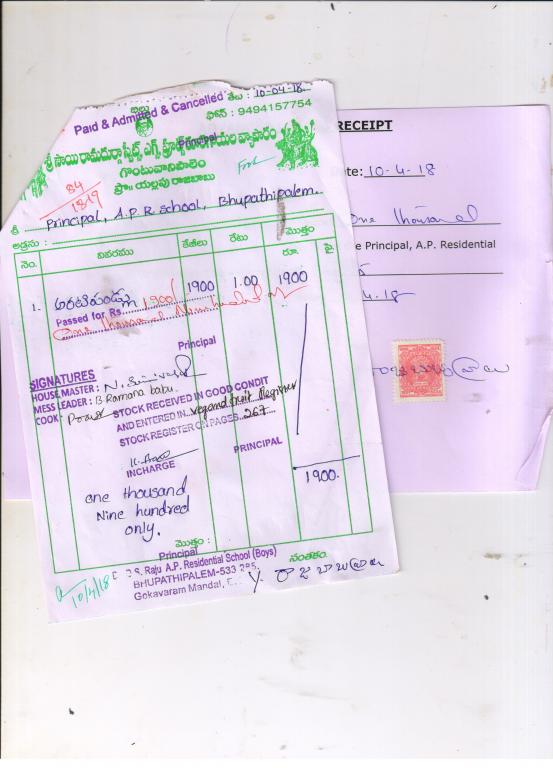 బిల్లు
తేది : 10-04-18
Paid & Admitted & Cancelled
ఫోన్ : 9494157754
Principal
శ్రీ సాయి రామదుర్గా
వ్యాపారం
గొంటువానిపాలెం
ప్రొ॥ యల్లపు రాజబాబు
84
1819
శ్రీ Principal, A.P.R school, Bhupathipalem.
అడ్రసు :
నెం. వివరము కేజీలు రేటు మొత్తం
రూ. పై
1. అరటిపండ్లు 1900 1.00 1900
Passed for Rs. 1900/
One thousand Nine hundred
Principal
SIGNATURES
HOUSE MASTER :
MESS LEADER : B Ramana babu.
COOK :
STOCK RECEIVED IN GOOD CONDIT
AND ENTERED IN vegand fruit Register
STOCK REGISTER ON PAGES 267
PRINCIPAL
INCHARGE
1900.
one thousand
Nine hundred
only.
మొత్తం :
Principal
S. Raju A.P. Residential School (Boys)
BHUPATHIPALEM-533
Gokavaram Mandal, E.
సంతకం.
Y. రాజబాబు
10/4/18
RECEIPT
te: 10-4-18
One thousand
e Principal, A.P. Residential
4-18